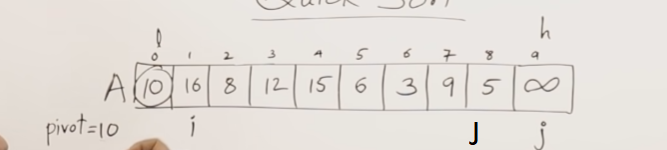 Quick Sort
l h
0 1 2 3 4 5 6 7 8 9
A 10 16 8 12 15 6 3 9 5 ∞
pivot=10 i J j